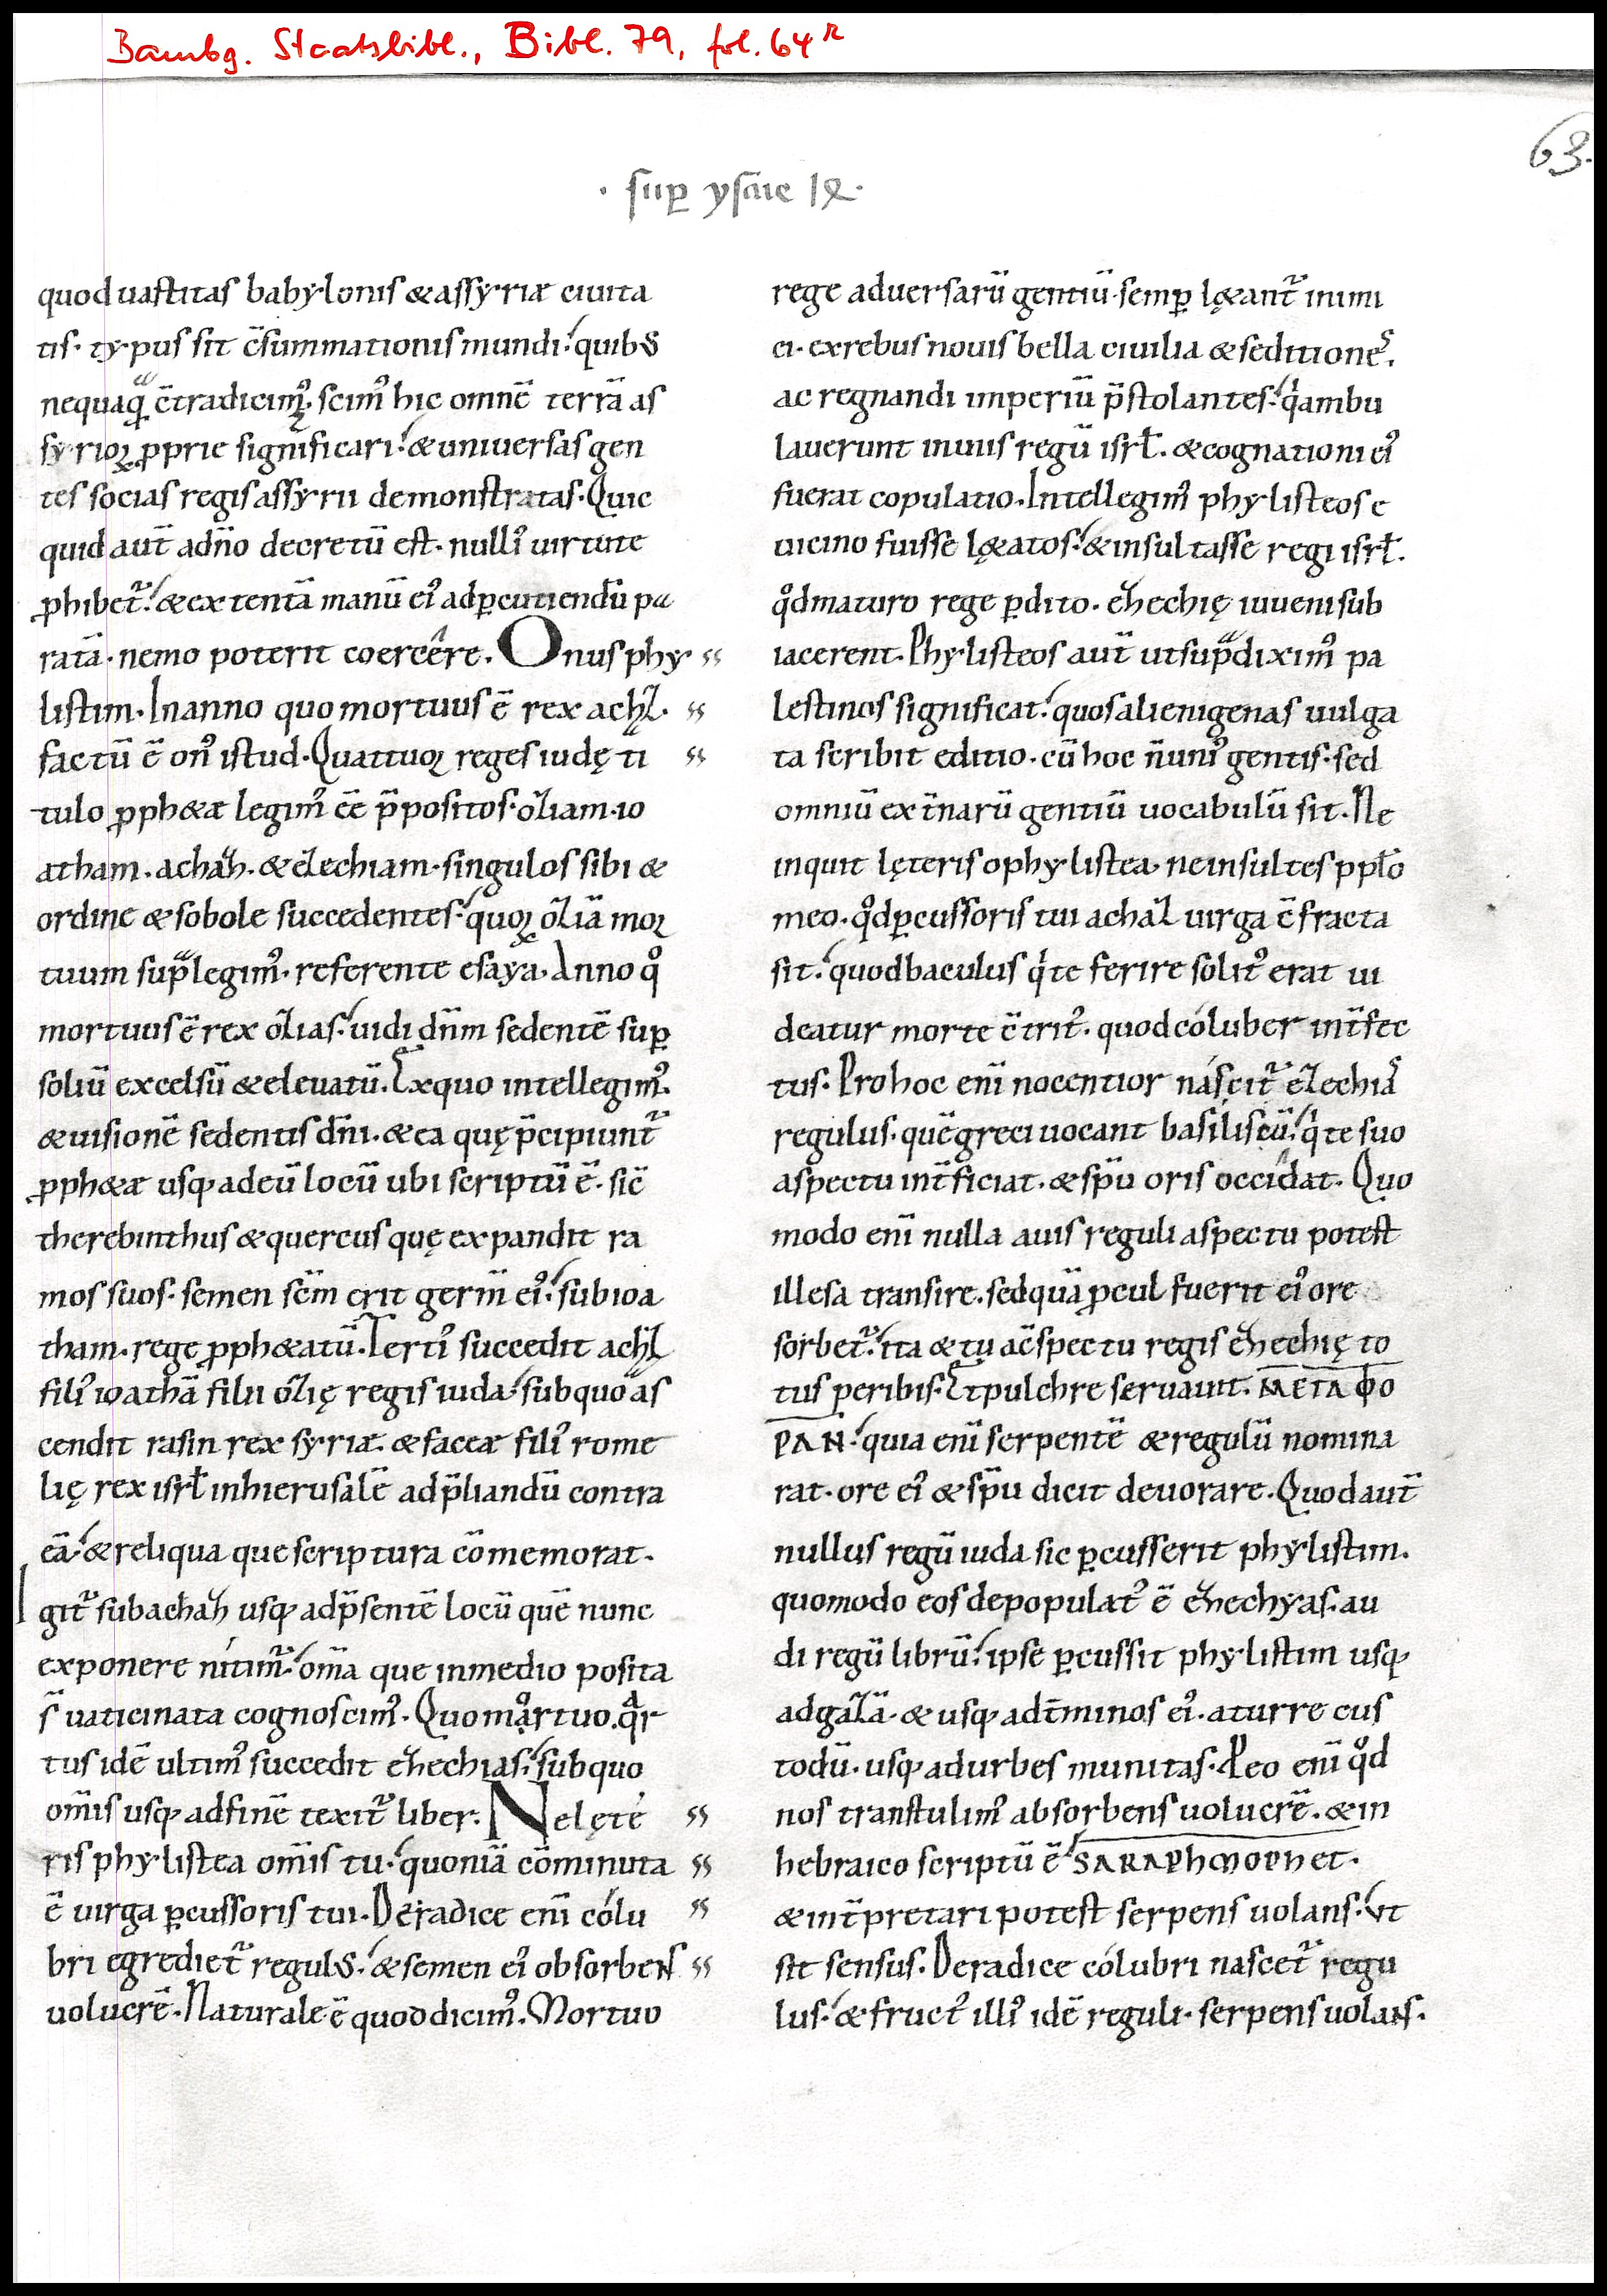 Bambg. Staatsbibl., Bibl. 79, fol. 64ʳ
63.
· sup̱ ysaie
quod uastitas babylonis & assyriæ ciuita
tis· typus sit c̄summationis mundi· quibus
nequaq̄ c̄tradicim᷒· scim᷒ hic omnē terrā as
syrioꝝ ꝓprie significari· & uniuersas gen
tes socias regis assyrii demonstratas· Quic
quid aut̄ adn̄o decretū est· null᷒ uirtute
ꝓhibet᷑· & extentā manū ei᷒ adꝑcutiendū pa
ratā· nemo poterit coercêre. Onus phy
listim· In anno quo mortuus ē rex achaz·
factū ē on᷒ istud· Quattuoꝛ reges iudę ti
tulo ꝓph&æ legim᷒ ēē p̄positos· oziam· io
atham· achaz· & ezechiam· singulos sibi &
ordine & sobole succedentes· quoꝝ oziā moꝛ
tuum sup̄legim᷒· referente esaya· Anno qͦ
mortuus ē rex ozias· uidi dn̄m sedentē suꝑ
soliū excelsū & eleuatū· Ex quo intellegim᷒·
& uisionē sedentis dn̄i· & ea quę p̄cipiunt᷑
ꝓph&æ usq; adeū locū ubi scriptū ē· sic̄
therebinthus & quercus quę expandit ra
mos suos· semen sc̄m erit germ̄ ei᷒· sub ioa
tham· rege ꝓph&atū· Terti᷒ succedit achaz
fili᷒ ioathā filii ozię regis iuda· sub quo as
cendit rasin rex syriæ· & faceæ fili᷒ rome
lię rex isrł in hierusalē adp̄liandū contra
eā· & reliqua que scriptura cōmemorat·
Igit᷑ sub achaz usq; adp̄sentē locū quē nunc
exponere nitim᷑· om̄a que inmedio posita
s̄ uaticinata cognoscim᷒· Quo mortuo· qͣr
tus idē ultim᷒ succedit ezechias· sub quo
om̄is usq; adfinē texit᷑ liber. Ne lęte
ris phylistea om̄is tu· quoniā cōminuta
ē uirga ꝑcussoris tui· De radice eni̅ colu
bri egrediet᷑ regulus· & semen ei᷒ obsorbens
uolucrē· Naturale ē quod dicim᷒. Mortuo
rege aduersarū gentiū· semꝑ lę&ant᷑ inimi
ci· ex rebus nouis bella ciuilia & seditiones·
ac regnandi imperiū p̄stolantes· qͥ ambu
lauerunt in uiis regū isrł· & cognationi ei᷒
fuerat copulatio· Intellegim᷒ phylisteos e
uicino fuisse lę&atos· & insultasse regi isrł·
qͦd maturo rege ꝑdito· ezechię iuueni sub
iacerent· Phylisteos aut̄ ut supͣ dixim᷒ pa
lestinos significat· quos alienigenas uulga
ta scribit editio· cū hoc n̄ uni᷒ gentis· sed
omniū ext̄narū gentiū uocabulū sit· Ne
inquit lęteris o phylistea· ne insultes ppło
meo· qͦd ꝑcussoris tui achaz uirga ē fracta
sit· quod baculus qͥ te ferire solit᷒ erat ui
deatur morte c̄trit᷒· quod coluber int̄fec
tus· Pro hoc eni̅ nocentior nascit᷑ ezechias
regulus· quē greci uocant basiliscū· qͥ te suo
aspectu int̄ficiat· & sp̄u oris occidat· Quo
modo eni̅ nulla auis reguli aspectu potest
illesa transire· sed quāꝓcul fuerit ei᷒ ore
sorbet᷑· ita & tu ac̄spectu regis ezechię to
tus peribis· Et pulchre seruauit· ΜΕΤΑΦΟ
ΡΑΝ· quia eni̅ serpentē & regulū nomina
rat· ore ei᷒ & sp̄u dicit deuorare· Quod aut̄
nullus regū iuda sic ꝑcusserit phylistim·
quomodo eos depopulat᷒ ē ezechyas· au
di regū librū· ipse ꝑcussit phylistim usq;
ad gazā· & usq; adt̄minos ei᷒· a turre cus
todū· usq; ad urbes munitas· Reo eni̅ qͦd
nos transtulim᷒ absorbens uolucrē· & in
hebraico scriptū ē SARAPhMOPhet·
& int̄pretari potest serpens uolans· ut
sit sensus· De radice colubri nascet᷑ regu
lus· & fruct᷒ illi᷒ idē reguli· serpens uolans·